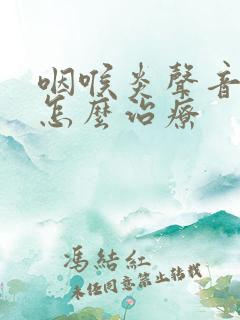 咽喉炎聲音
怎麼治療
馮結紅
未经同意禁止转载